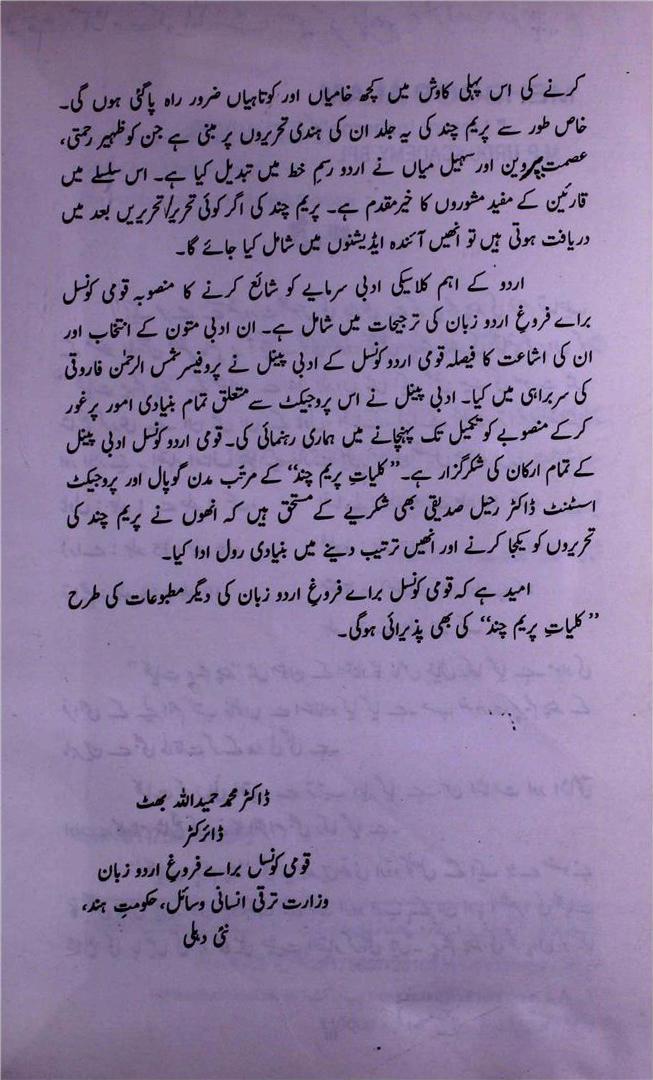 کرنے کی اس پہلی کاوش میں کچھ خامیاں اور کوتاہیاں ضرور راہ پا گئی ہوں گی۔
خاص طور سے پریم چند کی یہ جلد ان کی ہندی تحریروں پر مبنی ہے جن کو ظہیر رحمتی،
عصمت پروین اور سہیل میاں نے اردو رسمِ خط میں تبدیل کیا ہے۔ اس سلسلے میں
قارئین کے مفید مشوروں کا خیر مقدم ہے۔ پریم چند کی اگر کوئی تحریر/تحریریں بعد میں
دریافت ہوتی ہیں تو انھیں آئندہ ایڈیشنوں میں شامل کیا جائے گا۔
اردو کے اہم کلاسیکی ادبی سرمایے کو شائع کرنے کا منصوبہ قومی کونسل
براے فروغِ اردو زبان کی ترجیحات میں شامل ہے۔ ان ادبی متون کے انتخاب اور
ان کی اشاعت کا فیصلہ قومی اردو کونسل کے ادبی پینل نے پروفیسر شمس الرحمٰن فاروقی
کی سربراہی میں کیا۔ ادبی پینل نے اس پروجیکٹ سے متعلق تمام بنیادی امور پر غور
کر کے منصوبے کو تکمیل تک پہنچانے میں ہماری رہنمائی کی۔ قومی اردو کونسل ادبی پینل
کے تمام ارکان کی شکرگزار ہے۔ ”کلیاتِ پریم چند“ کے مرتّب مدن گوپال اور پروجیکٹ
اسسٹنٹ ڈاکٹر رحیل صدیقی بھی شکریے کے مستحق ہیں کہ انھوں نے پریم چند کی
تحریروں کو یکجا کرنے اور انھیں ترتیب دینے میں بنیادی رول ادا کیا۔
امید ہے کہ قومی کونسل براے فروغِ اردو زبان کی دیگر مطبوعات کی طرح
”کلیاتِ پریم چند“ کی بھی پذیرائی ہوگی۔
ڈاکٹر محمد حمیداللہ بھٹ
ڈائرکٹر
قومی کونسل براے فروغِ اردو زبان
وزارت ترقی انسانی وسائل، حکومتِ ہند،
نئی دہلی